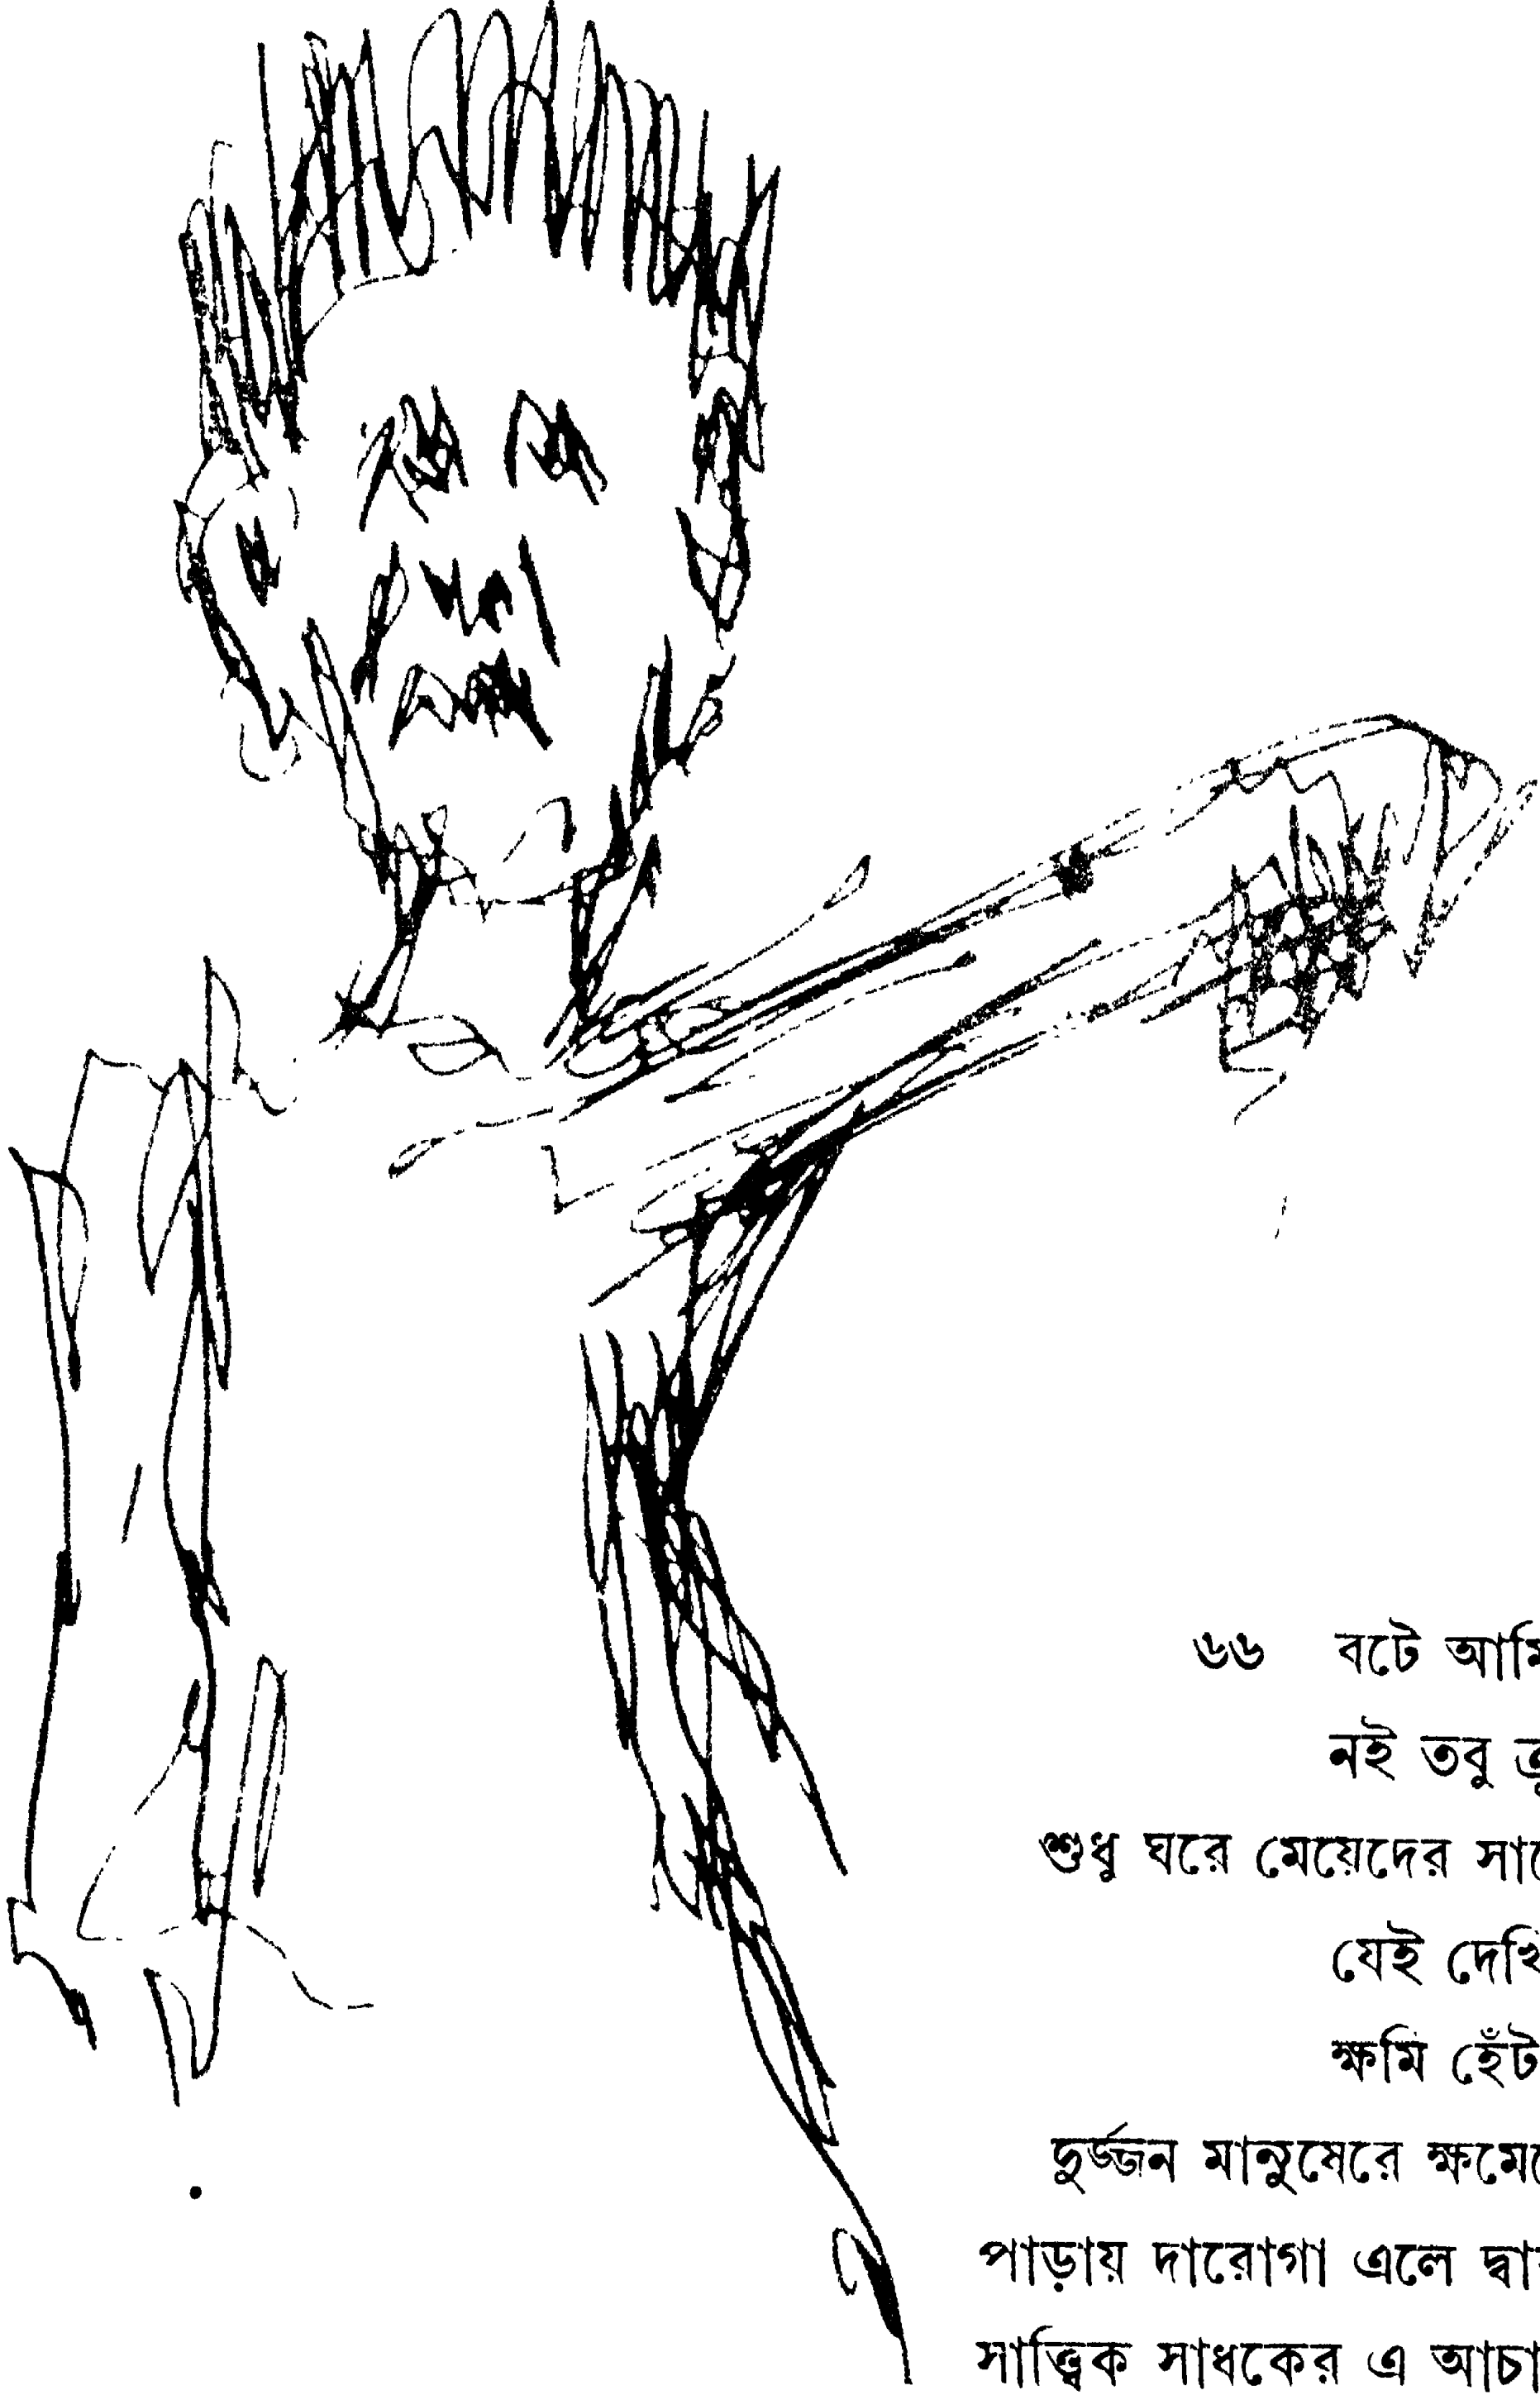 ৬৬ বটে আমি
নই তবু ক্রূ
শুধু ঘরে মেয়েদের সা
যেই দেখি
ক্ষমি হেঁট
দুর্জ্জন মানুষেরে ক্ষমে
পাড়ায় দারোগা এলে দ্বা
সাত্ত্বিক সাধকের এ আচা